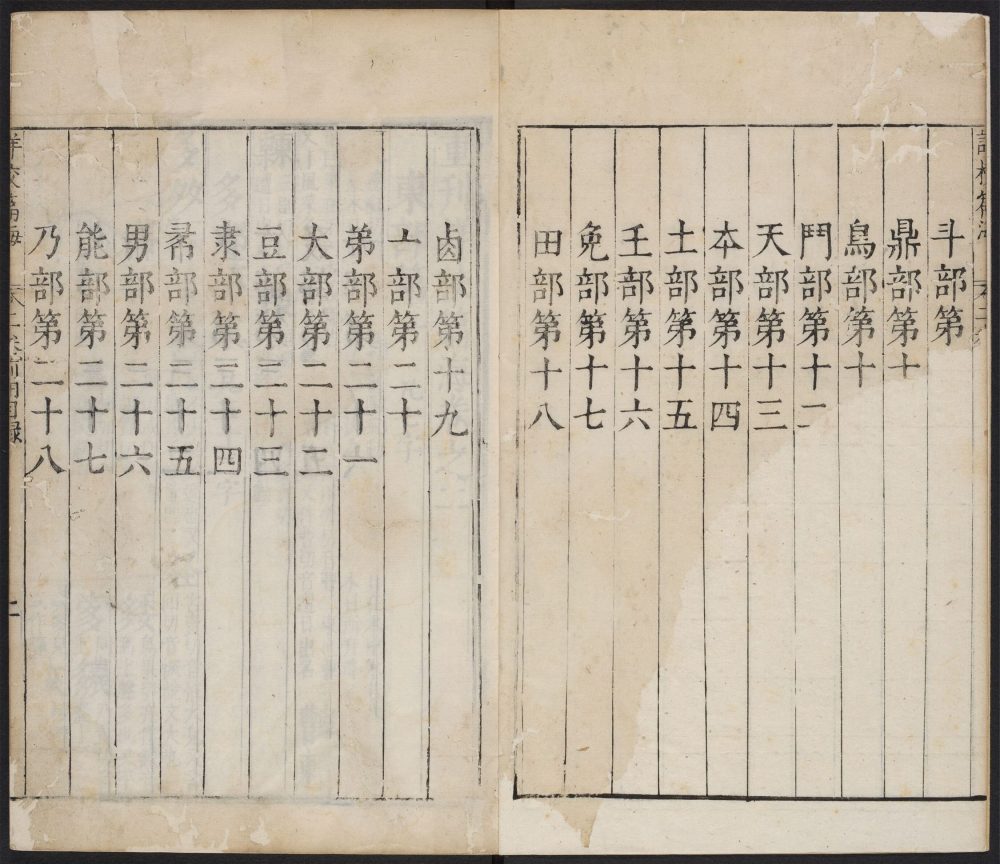 斗部第
鼎部第十
鳥部第十
鬥部第十二
天部第十三
夲部第十四
土部第十五
壬部第十六
兔部第十七
田部第十八
卥部第十九
亠部第二十
弟部第二十一
大部第二十二
豆部第二十三
隶部第二十四
希部第二十五
男部第二十六
能部第二十七
乃部第二十八
詳校篇海